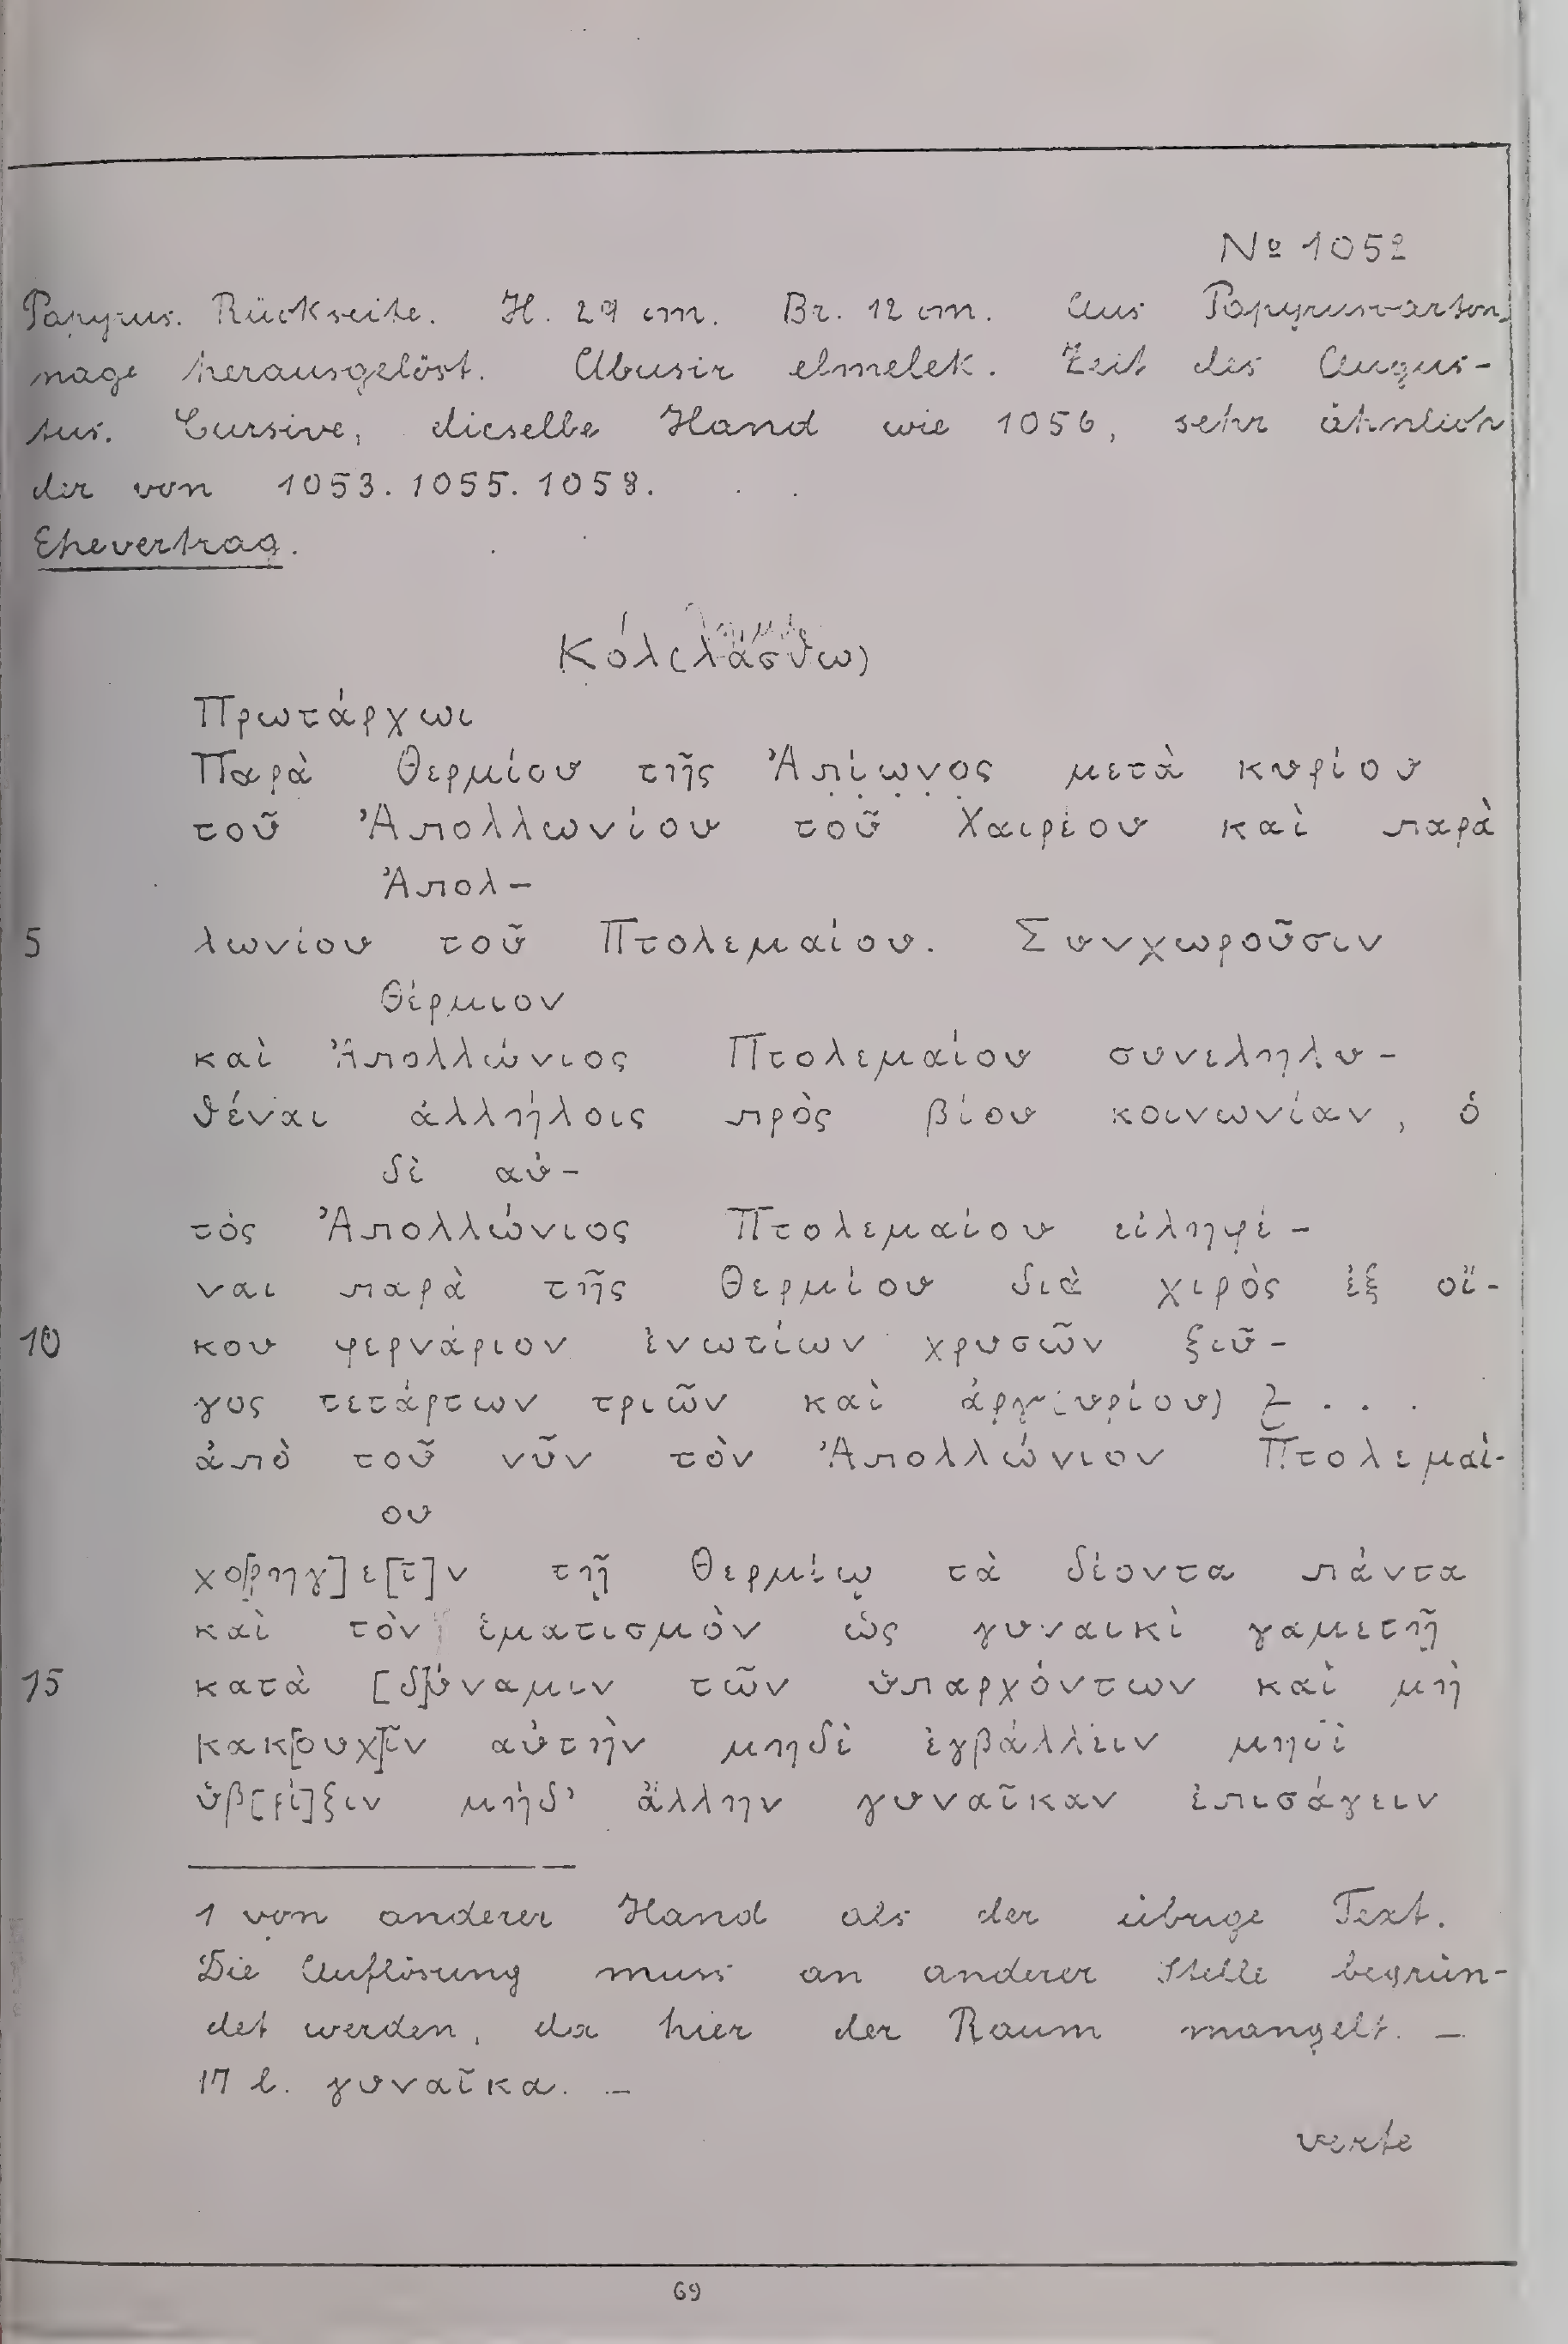 № 1052
Papyrus. Rückseite. H. 29 cm. Br. 12 cm. Aus Papyruscarton-
nage herausgelöst. Abusir elmelek. Zeit des Augus-
tus. Cursive, dieselbe Hand wie 1056, sehr ähnlich
der von 1053. 1055. 1058.
Ehevertrag.
Κόλ(λάσθω)
Πρωτάρχωι
Παρὰ Θερμίου τῆς Ἀπίωνος μετὰ κυρίου
τοῦ Ἀπολλωνίου τοῦ Χαιρέου καὶ παρὰ
Ἀπολ-
5 λωνίου τοῦ Πτολεμαίου. Συνχωροῦσιν
Θέρμιον
καὶ Ἀπολλώνιος Πτολεμαίου συνεληλυ-
θέναι ἀλλήλοις πρὸς βίου κοινωνίαν, ὁ
δὲ αὐ-
τὸς Ἀπολλώνιος Πτολεμαίου εἰληφέ-
ναι παρὰ τῆς Θερμίου διὰ χιρὸς ἐξ οἴ-
10 κου φερνάριον ἐνωτίων χρυσῶν ζεῦ-
γος τετάρτων τριῶν καὶ ἀργ(υρίου) . . .
ἀπὸ τοῦ νῦν τὸν Ἀπολλώνιον Πτολεμαί-
ου
χο[ρηγ]ε[ῖ]ν τῇ Θερμίῳ τὰ δέοντα πάντα
καὶ τὸν ἱματισμὸν ὡς γυναικὶ γαμετῇ
15 κατὰ [δ]ύναμιν τῶν ὑπαρχόντων καὶ μὴ
κακ[ουχ]ῖν αὐτὴν μηδὲ ἐγβάλλειν μηδὲ
ὑβ[ρί]ζειν μήδ' ἄλλην γυναῖκαν ἐπισάγειν
1 von anderer Hand als der übrige Text.
Die Auflösung muss an anderer Stelle begrün-
det werden, da hier der Raum mangelt. —
17 l. γυναῖκα. —
verte
69